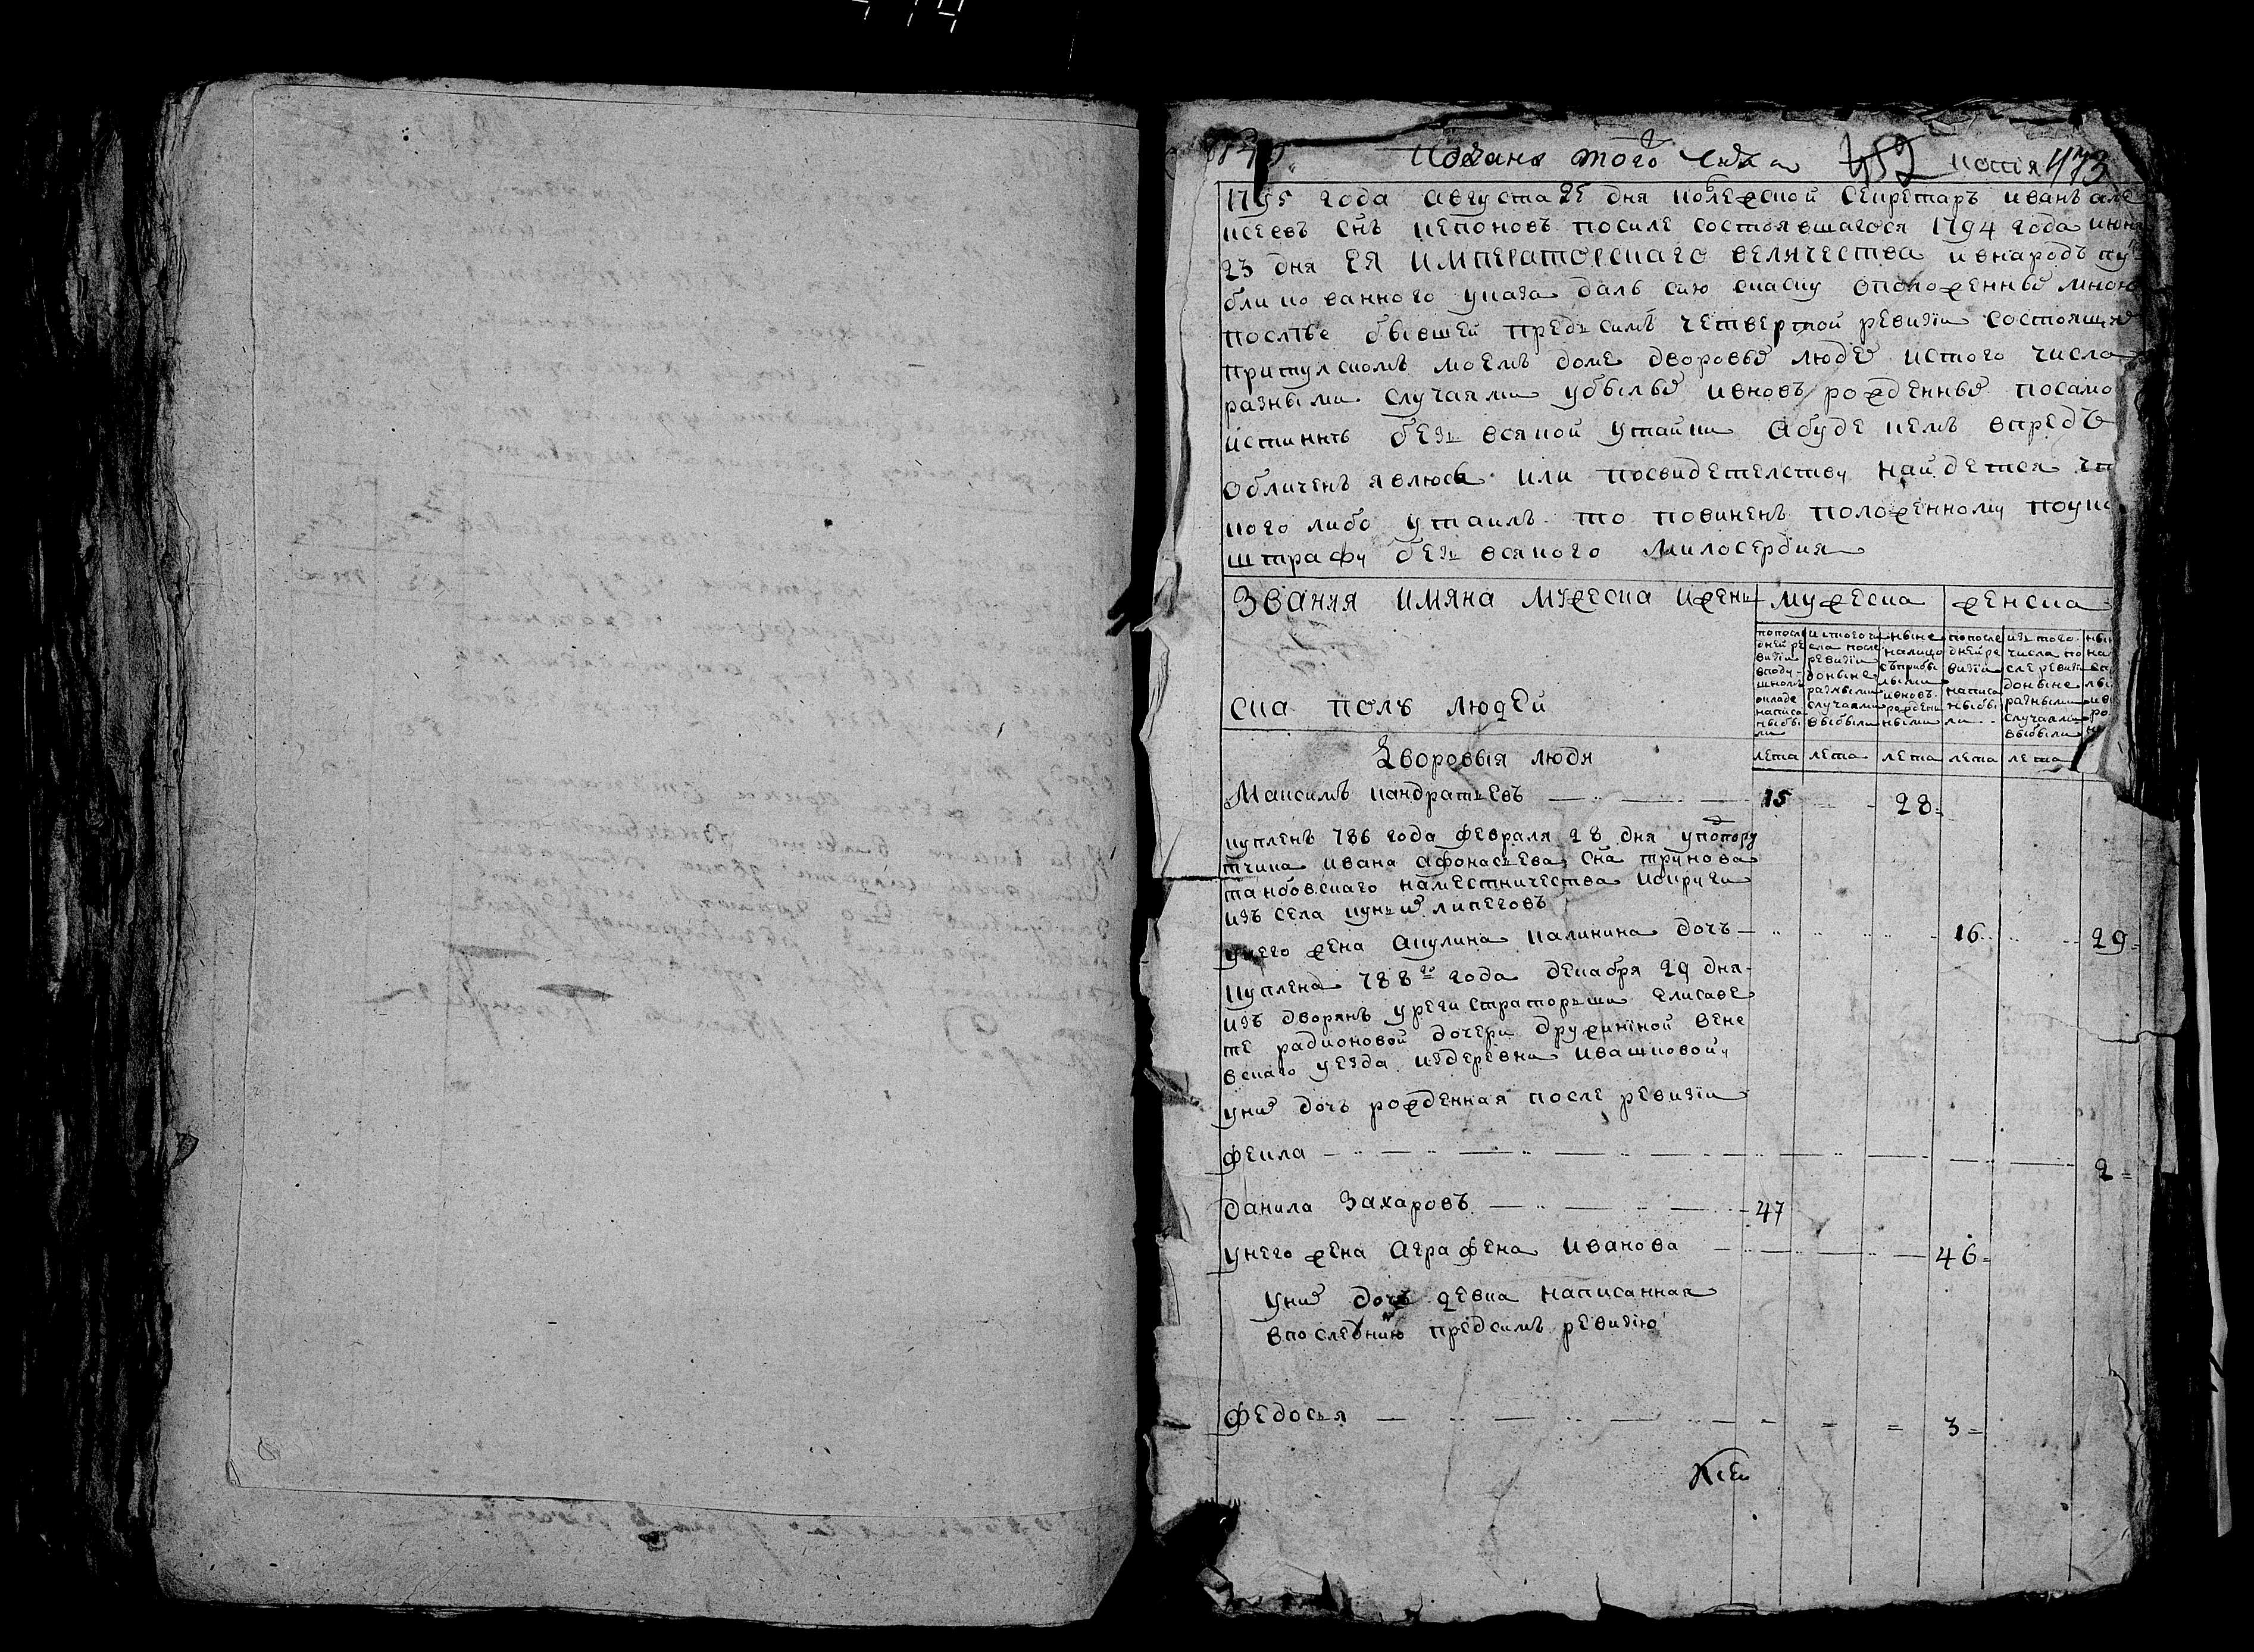 Подана того ж 452 копiя 473
1795 года августа 25 дня колежской секретарь иванъ але
ксеевъ снъ кепоновъ посиле состоявшагося 1794 года июня
23 дня ЕЯ ИМПЕРАТОРСКАГО ВЕЛИЧЕСТВА ивнародъ пу
бликованного указа далъ сию скаску оположенные мною
после бывшей предъ симъ четвертой ревизiи состоящие
притулскомъ моемъ доме дворовые люде истого числа
разными случаями убылые ивновь рожденные посамо
истинне безъ всякой утайки абуде кемъ впредь
обличенъ явлюсь или посвидетелству найдется что
кого либо утаилъ то повиненъ положенному поука
штрафу безъ всякого милосердия
Звания имяна мужеска ижень мужеска женска
попосле дней ре визiи вподу шномъ окладе написа ны бы ли
истого чи сла после ревизiи доныне разными случаями выбыли
ныне налицо съприбы лыми ивновь рожден ными
попосле дней ре визiи написа ны бы ли
изъ того числа по сле ревизiи доныне разными случаями выбыли
ска полъ людей
лета лета лета лета лета
Дворовыя людя
Максимъ кандратьевъ 15 28
купленъ 786 года февраля 28 дня уподпору
тчика ивана афонасьева сна трунова
танбовскаго наместничества иокруги
изъ села кункие липеговъ
унего жена Акулина калинина дочь 16 29
куплена 788го года декабря 29 дня
изъ дворянъ урегистраторши елисаве
те радионовой дочери дружининой вене
вскаго уезда издеревни ивашковой
уние дочь рожденная после ревизiи
фекла 2
данила Захаровъ 47
унего жена Аграфена иванова 46
уние дочь девка написанная
впоследнию предсимъ ревизiю
федосья 3